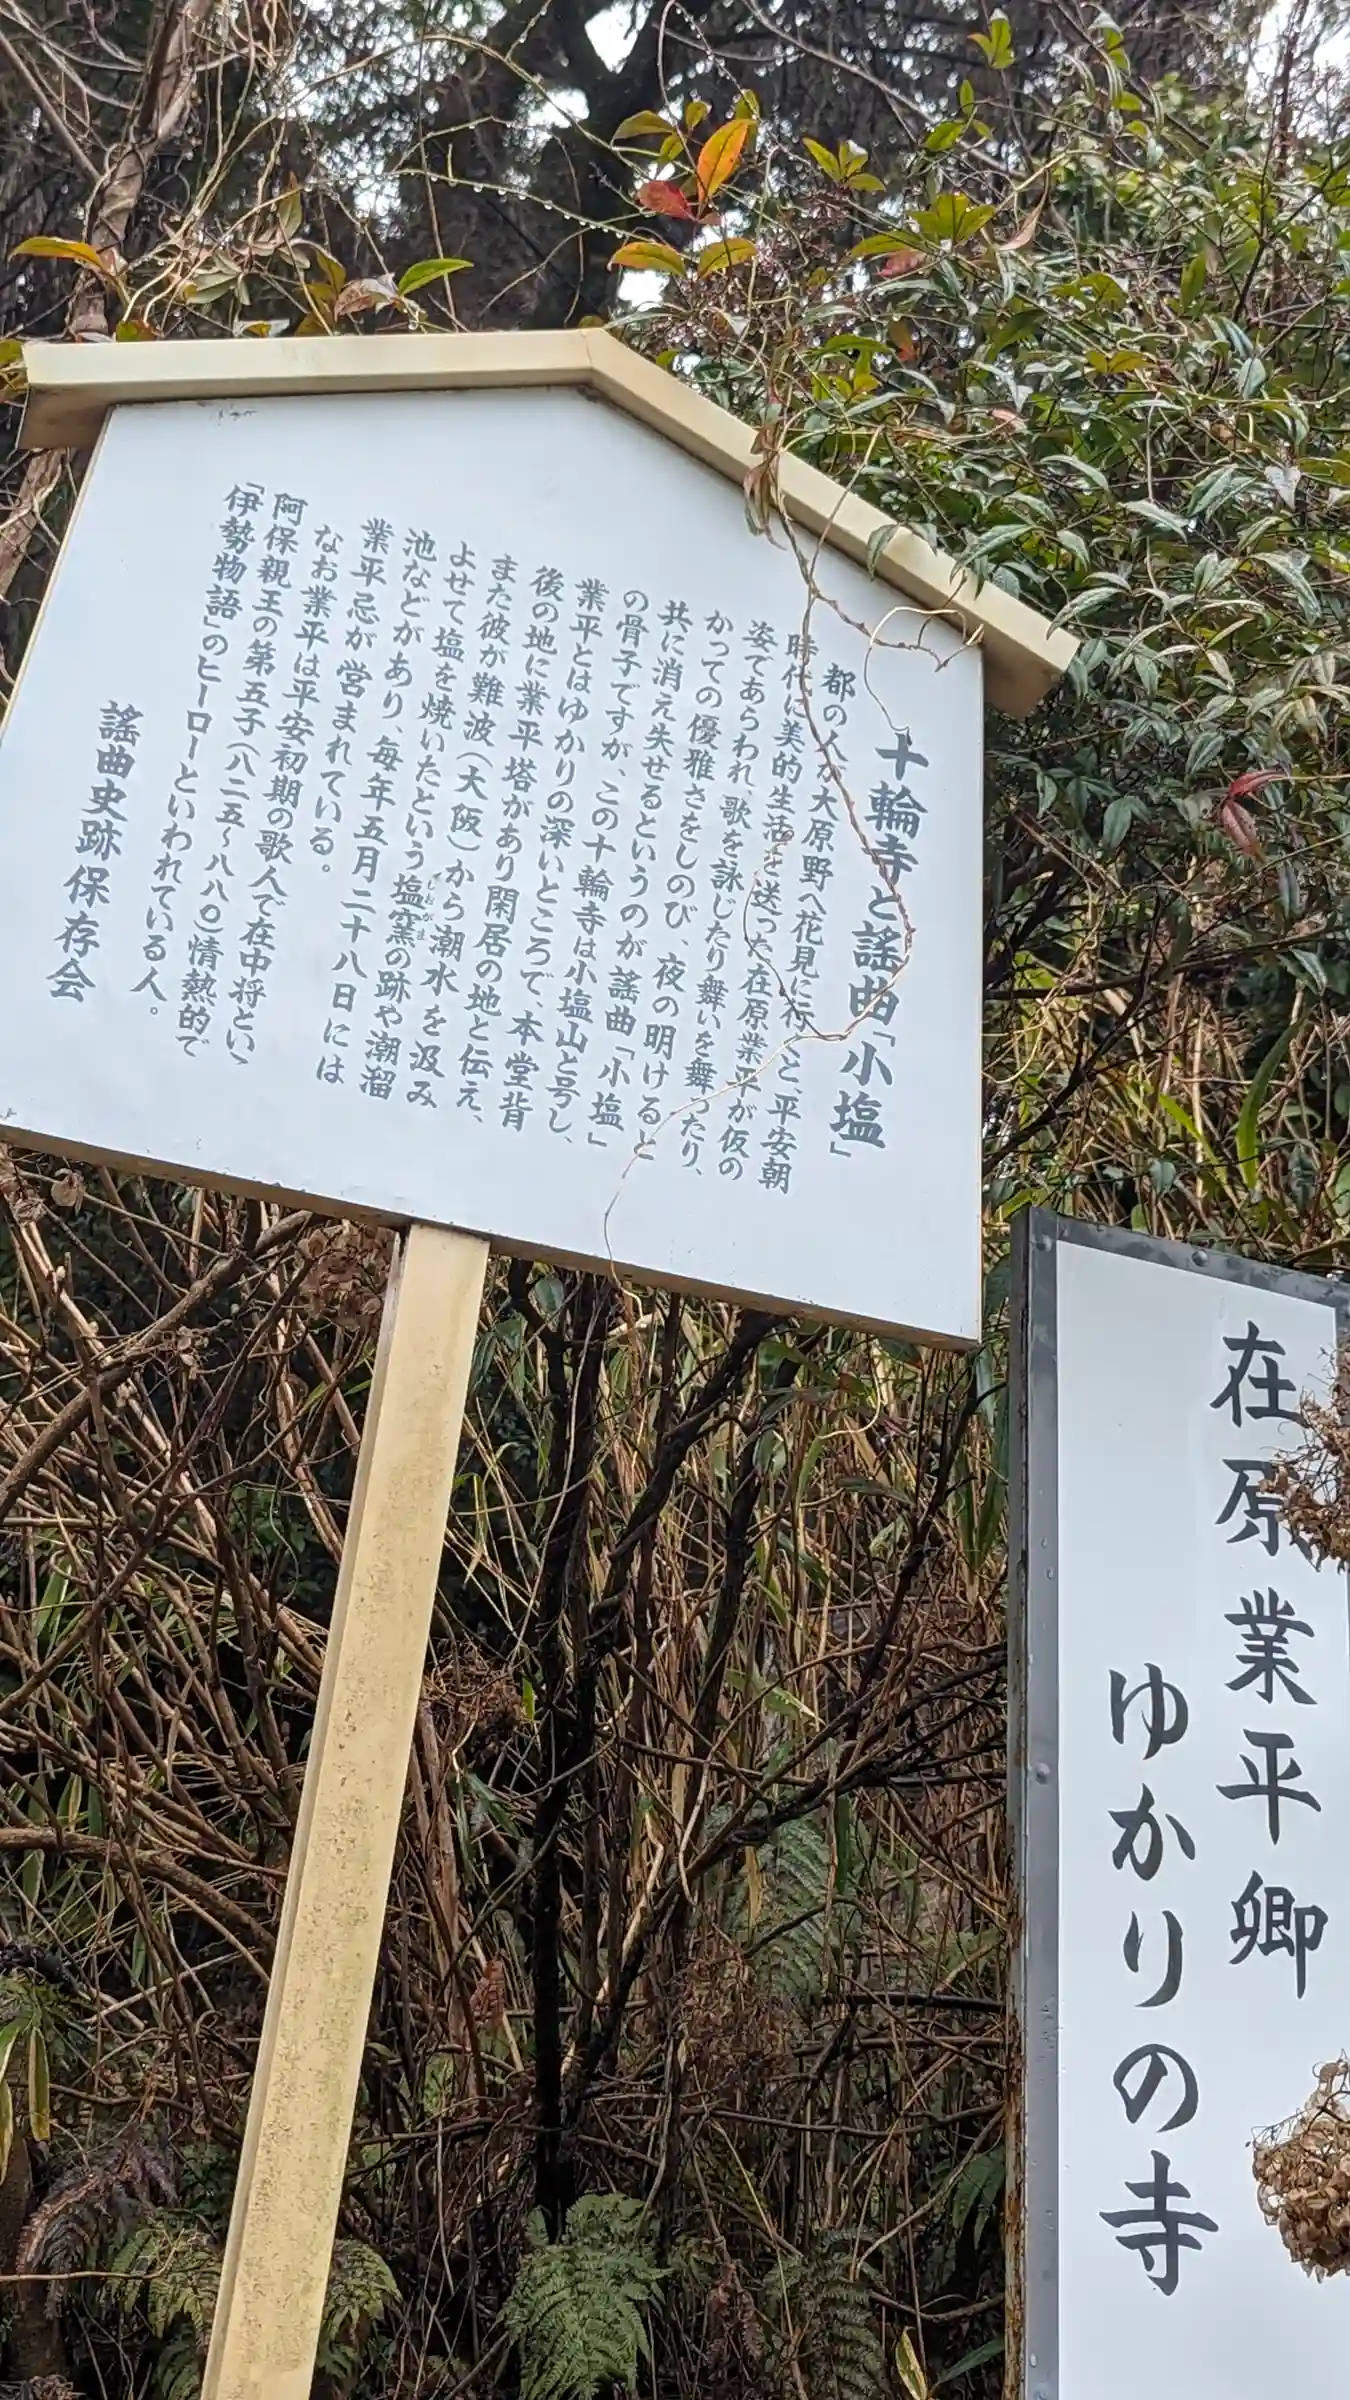 十輪寺と謡曲「小塩」
都の人が大原野へ花見に行くと、平安朝
時代に美的生活を送った在原業平が仮の
姿であらわれ、歌を詠じたり舞いを舞ったり、
かっての優雅さをしのび、夜の明けると
共に消え失せるというのが謡曲「小塩」
の骨子ですが、この十輪寺は小塩山と号し、
業平とはゆかりの深いところで、本堂背
後の地に業平塔があり閑居の地と伝え、
また彼が難波(大阪)から潮水を汲み
よせて塩を焼いたという塩窯の跡や潮溜
池などがあり、毎年五月二十八日には
業平忌が営まれている。
なお業平は平安初期の歌人で在中将といゝ
阿保親王の第五子(八二五〜八八〇)情熱的で
「伊勢物語」のヒーローといわれている人。
謡曲史跡保存会
在原業平卿
ゆかりの寺